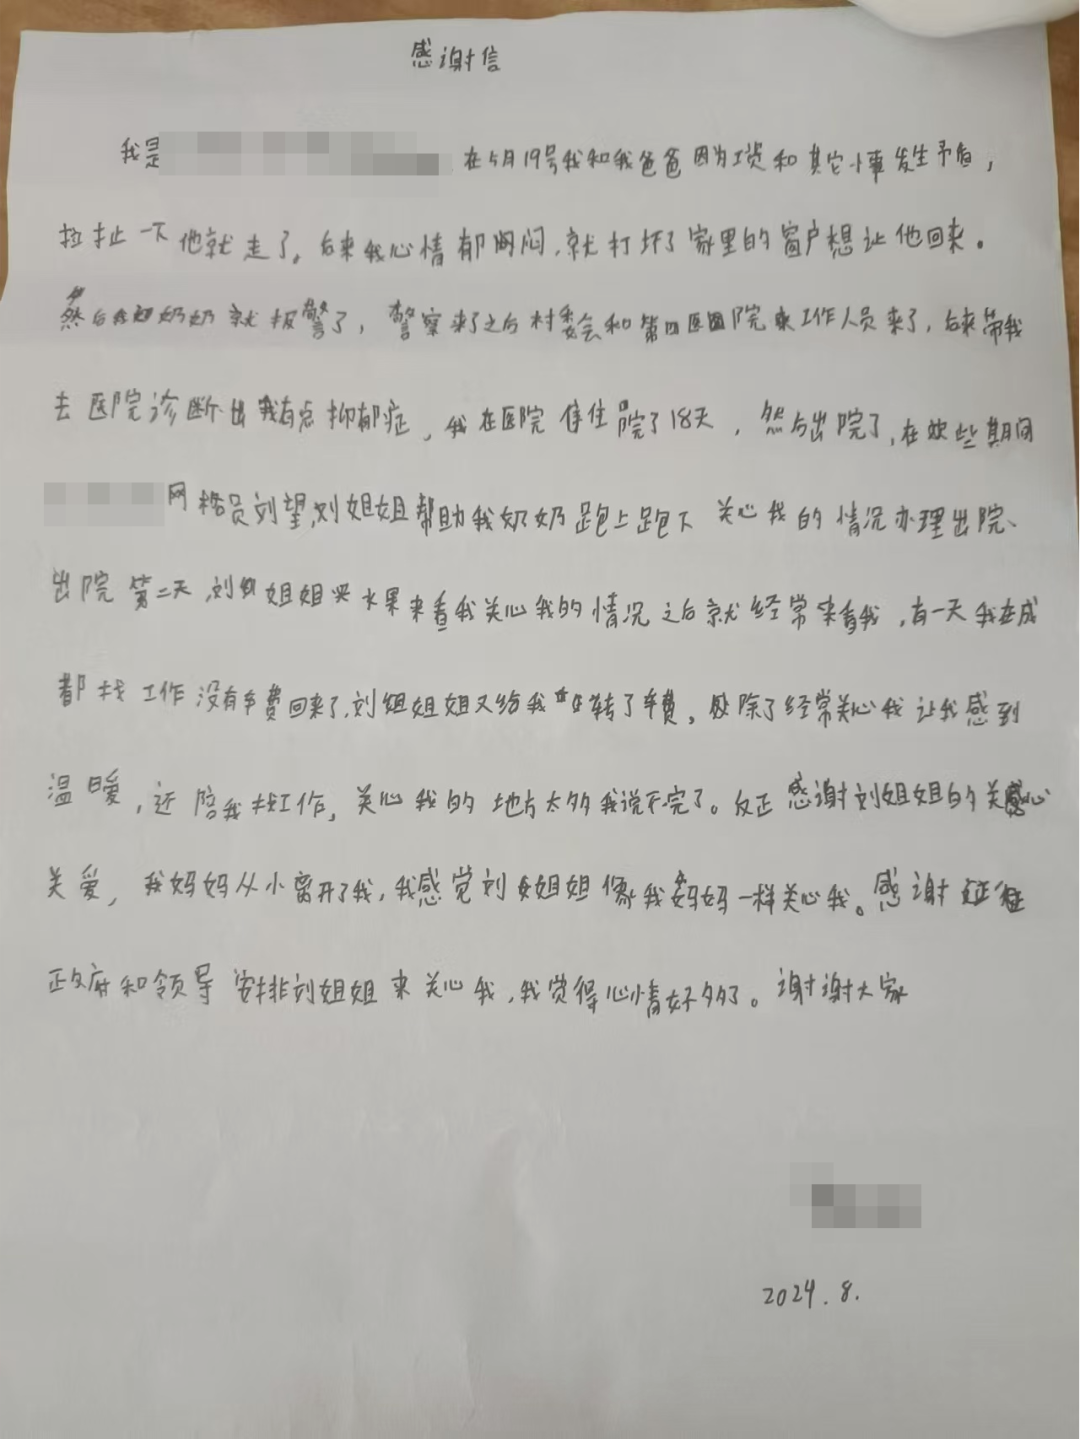 感谢信
我是 在5月19号我和我爸爸因为工资和其它小事发生矛盾，
拉扯一下他就走了。后来我心情郁闷闷，就打坏了家里的窗户想让他回来。
然后我奶奶就报警了，警察来了之后村委会和第四医院来工作人员来了，后来带我
去医院诊断出我有点抑郁症，我在医院住院了18天，然后出院了，在这些期间
网格员刘望，刘姐姐帮助我奶奶跑上跑下 关心我的情况办理出院、
出院第二天，刘姐姐买水果来看我关心我的情况之后就经常来看我，有一天我在成
都找工作没有车费回来了，刘姐姐又给我转了车费，除了经常关心我让我感到
温暖，还陪我找工作，关心我的地方太多我说不完了。反正感谢刘姐姐的关心
关爱，我妈妈从小离开了我，我感觉刘姐姐像我妈妈一样关心我。感谢
政府和领导安排刘姐姐来关心我，我觉得心情好多了。谢谢大家
2024.8.